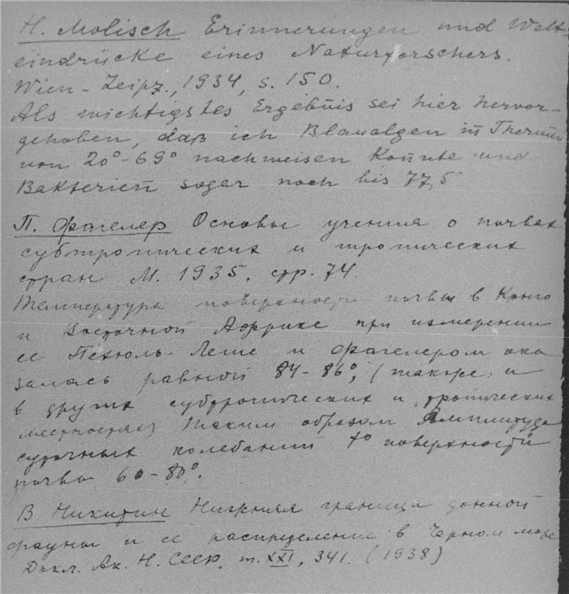 H. Molisch Erinnerungen und Welt-
eindrücke eines Naturforschers.
Wien-Leipz., 1934, s. 150.
Als wichtigstes Ergebnis sei hier hervor-
gehoben, daß ich Blaualgen in Thermen
von 20°-69° nachweisen konnte und
Bakterien sogar noch bis 77,5
П. Фагелер Основы учения о почвах
субтропических и тропических
стран М. 1935. стр. 74.
Температура поверхности почвы в Конго
и Восточной Африке при измерении
ее Пехюль-Леше и Фагелером ока
залась равной 84-86°, (также и
в других субтропических и тропических
местностях) Таким образом Амплитуда
суточных колебаний t° поверхности
почвы 60-80°.
В Никитин Нижняя граница донной
фауны и ее распределение в Черном море
Докл. Ак. Н. СССР, т. XXI, 341. (1938)